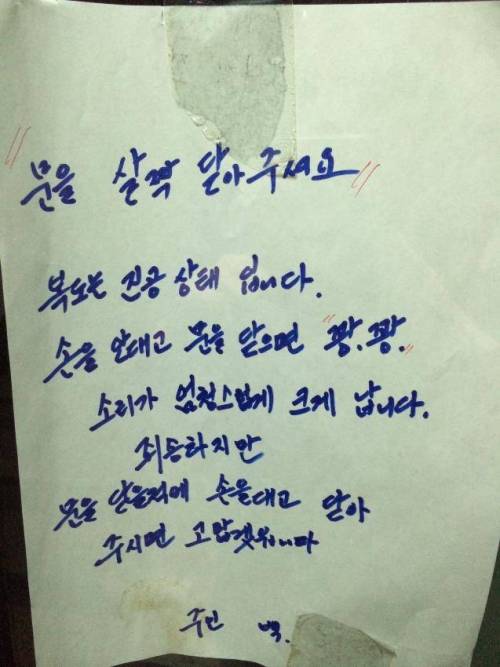 "문을 살짝 닫아주세요"
복도는 진공 상태 입니다.
손을 안대고 문을 닫으면 "쾅.쾅."
소리가 엄청스럽게 크게 납니다.
죄송하지만
문을 닫을적에 손을대고 닫아
주시면 고맙겠습니다
주민 백.